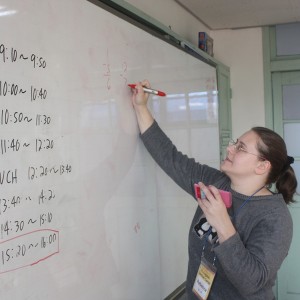 9:10~9:50
10:00~10:40
10:50~11:30
11:40~12:20
UCH 12:20~13:40
13:40~14:2
14:30~15:10
15:20~16:00